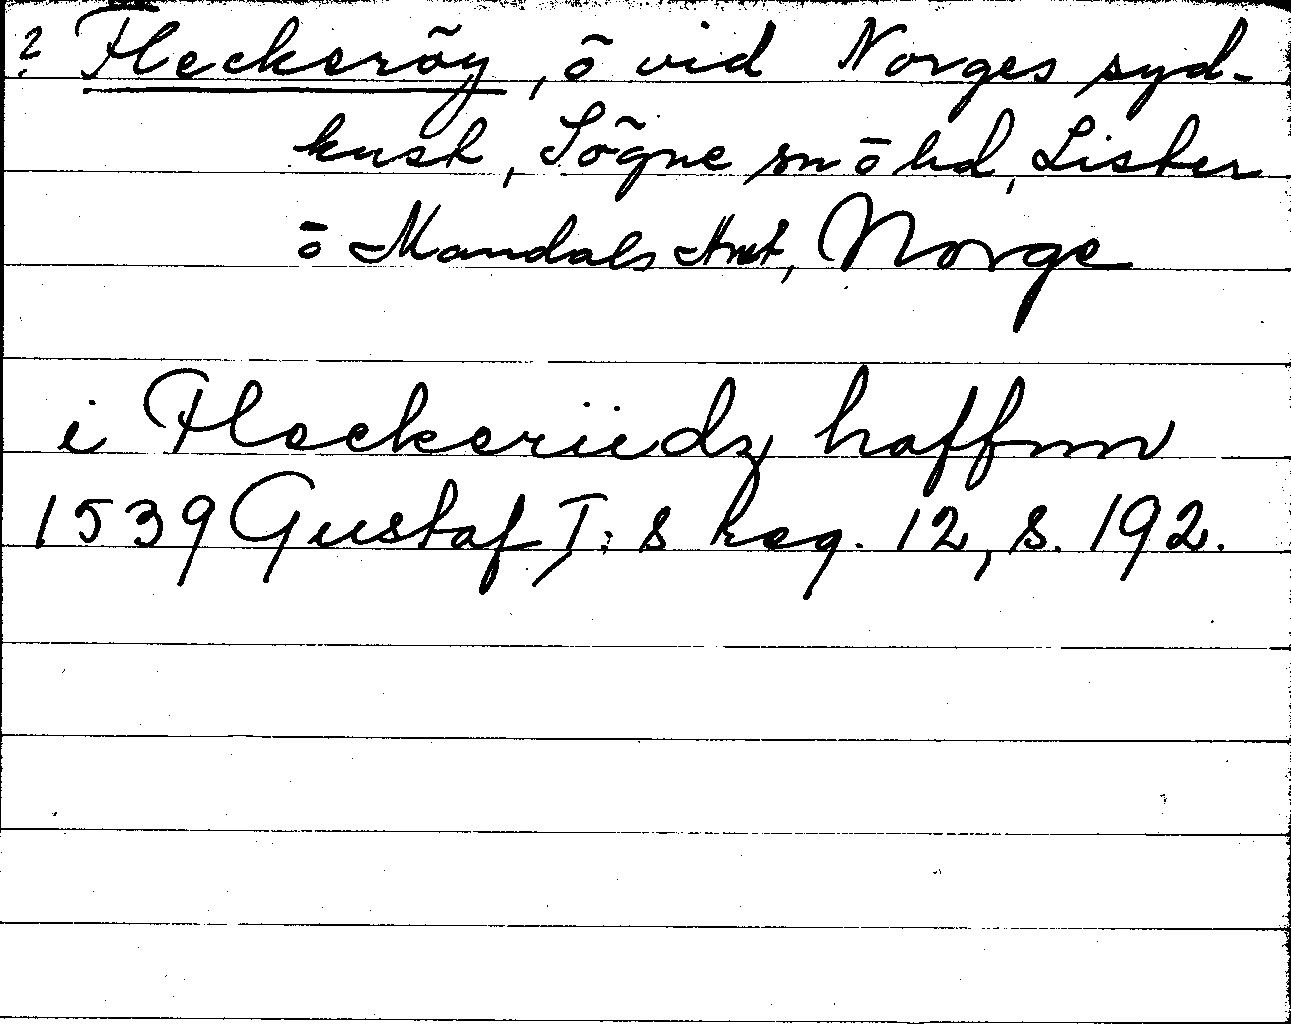 ? Fleckeröy, ö vid Norges syd-
kust, Sögne sn ō hd, Lister
ō Mandals Amt, Norge
i Fleckeriidz haffnn
1539 Gustaf I:s reg. 12, s. 192.